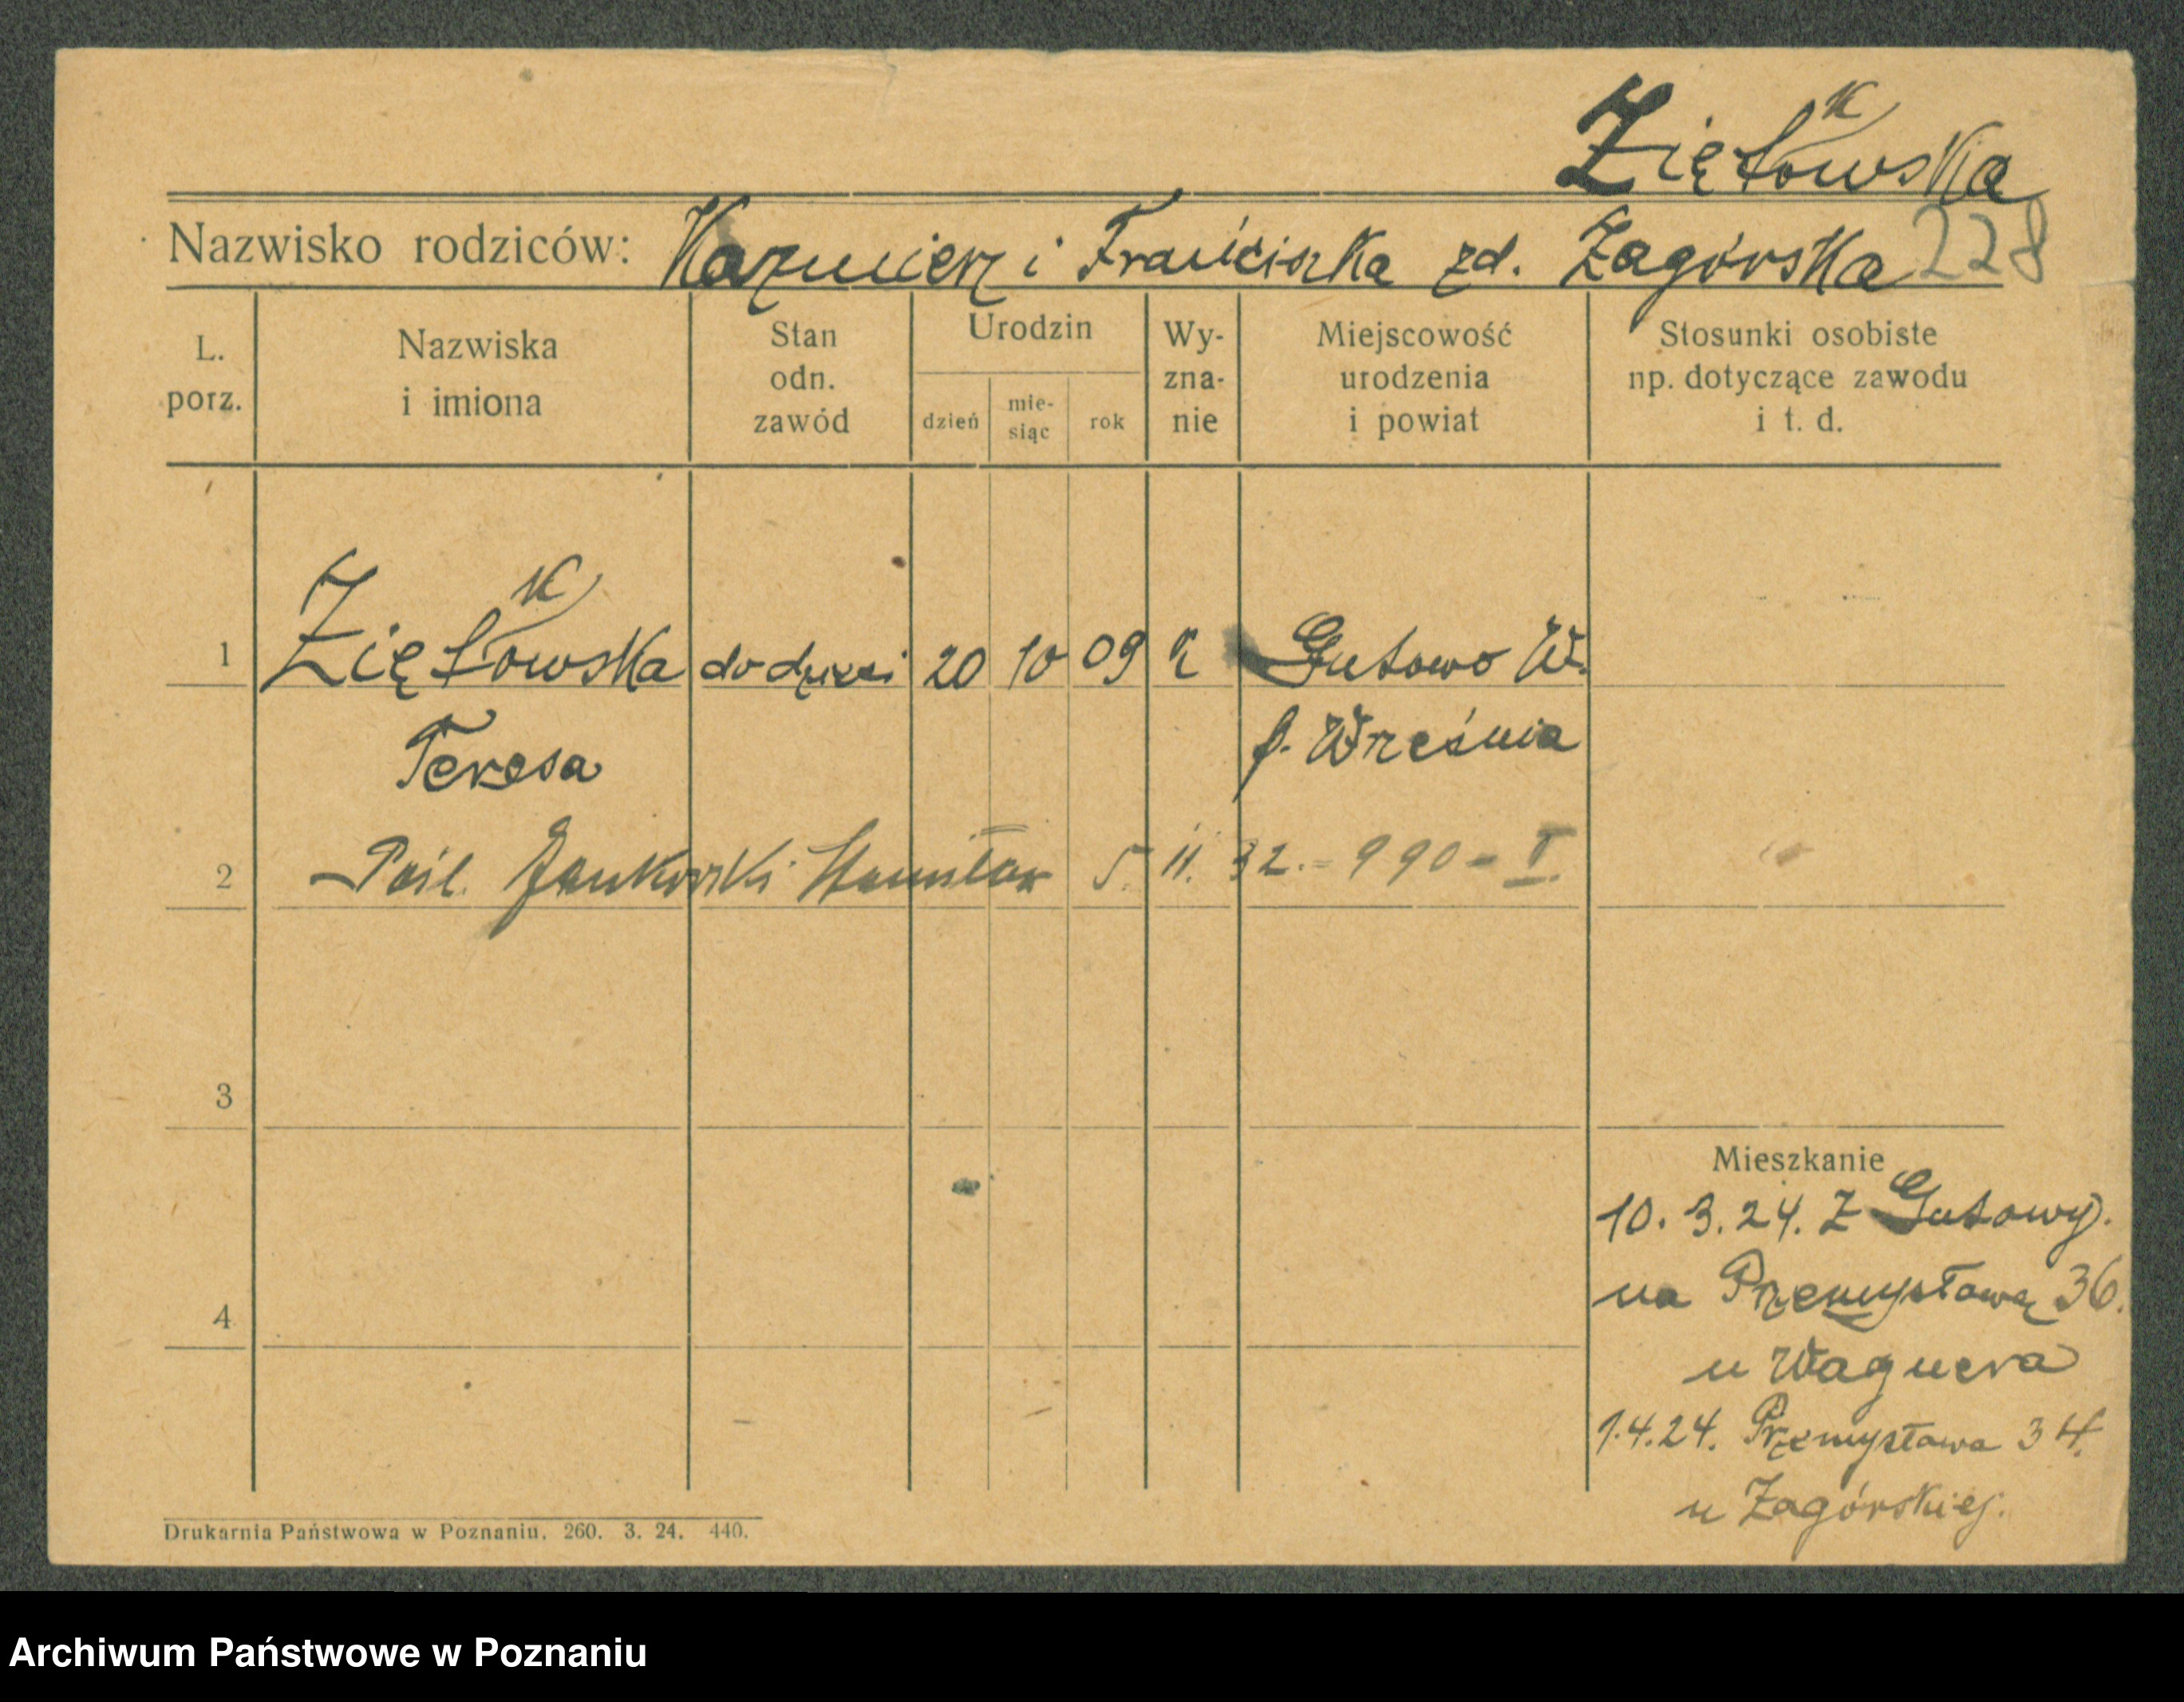 Ziętkowska
Nazwisko rodziców: Kazmierz i Franciszka zd. Zagórska 228
L. porz.
Nazwiska i imiona
Stan odn. zawód
Urodzin
dzień
mie-siąc
rok
Wy-zna-nie
Miejscowość urodzenia i powiat
Stosunki osobiste np. dotyczące zawodu i t. d.
1 Ziętkowska do dzieci 20 10 09 k Gutowo W.
Teresa p. Września
2 Pośl. Jankowski Stanisław 5. 11. 32. = 990 - I.
3
Mieszkanie
10. 3. 24. Z Gutowy.
na Przemysłową 36.
4
u Wagnera
1.4.24. Przemysłowa 34.
u Zagórskiej.
Drukarnia Państwowa w Poznaniu. 260. 3. 24. 440.
Archiwum Państwowe w Poznaniu